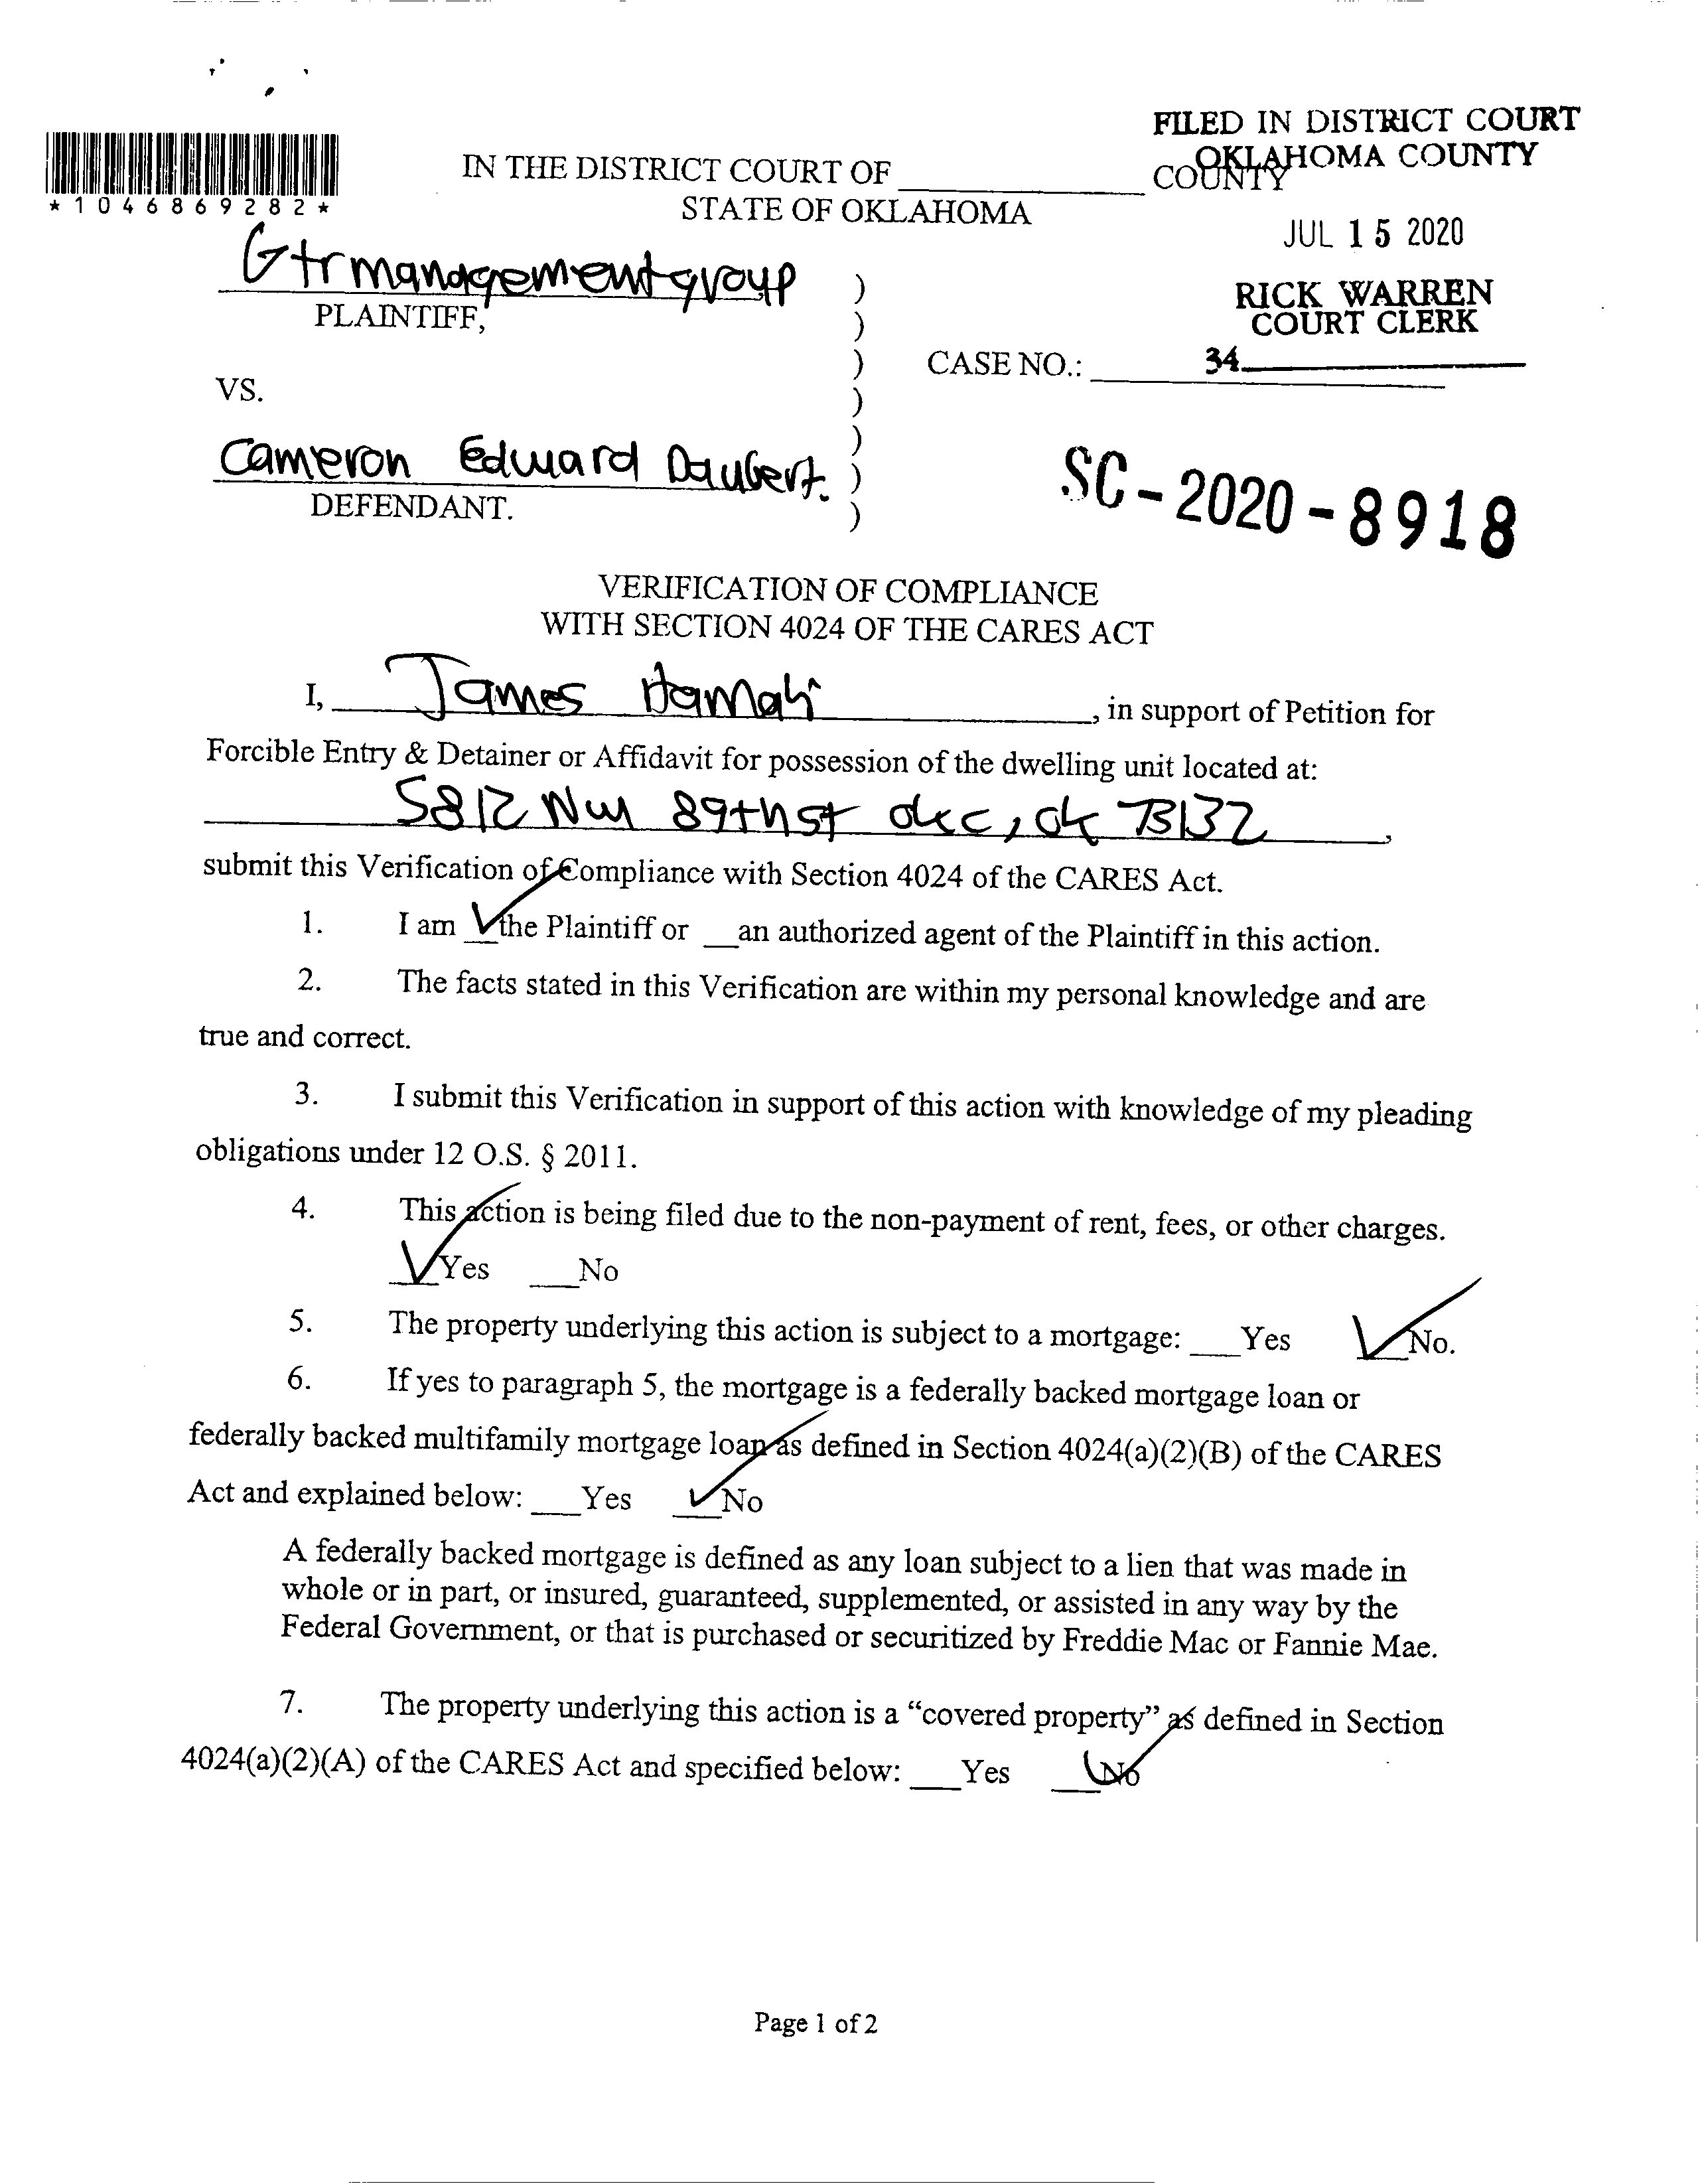 FILED IN DISTRICT COURT
OKLAHOMA COUNTY
*1046869282*
IN THE DISTRICT COURT OF ____________ COUNTY
STATE OF OKLAHOMA
JUL 15 2020
Gtrmanagementgroup )
PLAINTIFF, )
RICK WARREN
COURT CLERK
) CASE NO.: ____________
34____________
VS. )
)
Cameron Edward Daubert. )
DEFENDANT. )
SC-2020-8918
VERIFICATION OF COMPLIANCE
WITH SECTION 4024 OF THE CARES ACT
I, James , in support of Petition for
Forcible Entry & Detainer or Affidavit for possession of the dwelling unit located at:
5812 NW 89thst okc, ok 73132 ,
submit this Verification of Compliance with Section 4024 of the CARES Act.
1. I am ✓ the Plaintiff or __an authorized agent of the Plaintiff in this action.
2. The facts stated in this Verification are within my personal knowledge and are
true and correct.
3. I submit this Verification in support of this action with knowledge of my pleading
obligations under 12 O.S. § 2011.
4. This action is being filed due to the non-payment of rent, fees, or other charges.
✓ Yes ___No
5. The property underlying this action is subject to a mortgage: ___Yes ✓ No.
6. If yes to paragraph 5, the mortgage is a federally backed mortgage loan or
federally backed multifamily mortgage loan as defined in Section 4024(a)(2)(B) of the CARES
Act and explained below: ___Yes ✓ No
A federally backed mortgage is defined as any loan subject to a lien that was made in
whole or in part, or insured, guaranteed, supplemented, or assisted in any way by the
Federal Government, or that is purchased or securitized by Freddie Mac or Fannie Mae.
7. The property underlying this action is a “covered property” as defined in Section
4024(a)(2)(A) of the CARES Act and specified below: ___Yes ✓ No
Page 1 of 2